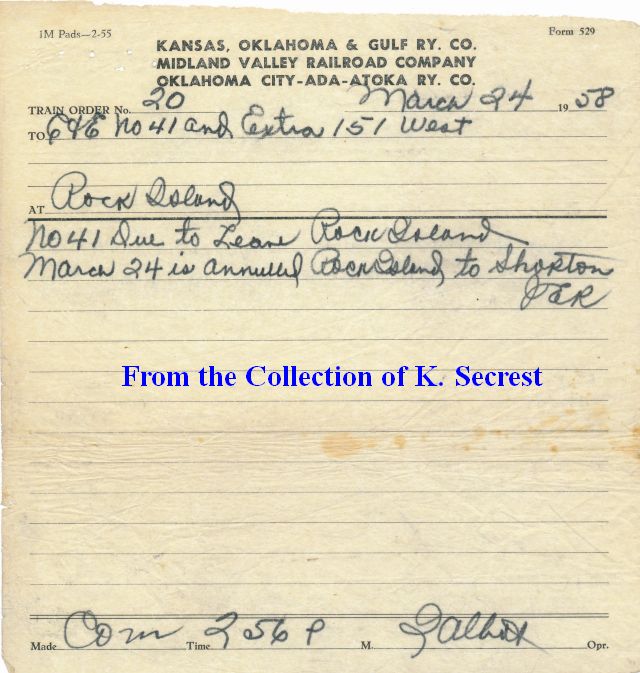 1M Pads—2-55
Form 529
KANSAS, OKLAHOMA & GULF RY. CO.
MIDLAND VALLEY RAILROAD COMPANY
OKLAHOMA CITY-ADA-ATOKA RY. CO.
TRAIN ORDER No. 20 March 24 1958
TO C&E No 41 and Extra 151 West
AT Rock Island
No 41 Due to Leave Rock Island
March 24 is annulled Rock Island to Shopton
From the Collection of K. Secrest
Made Com Time 256 P M. Talbott Opr.